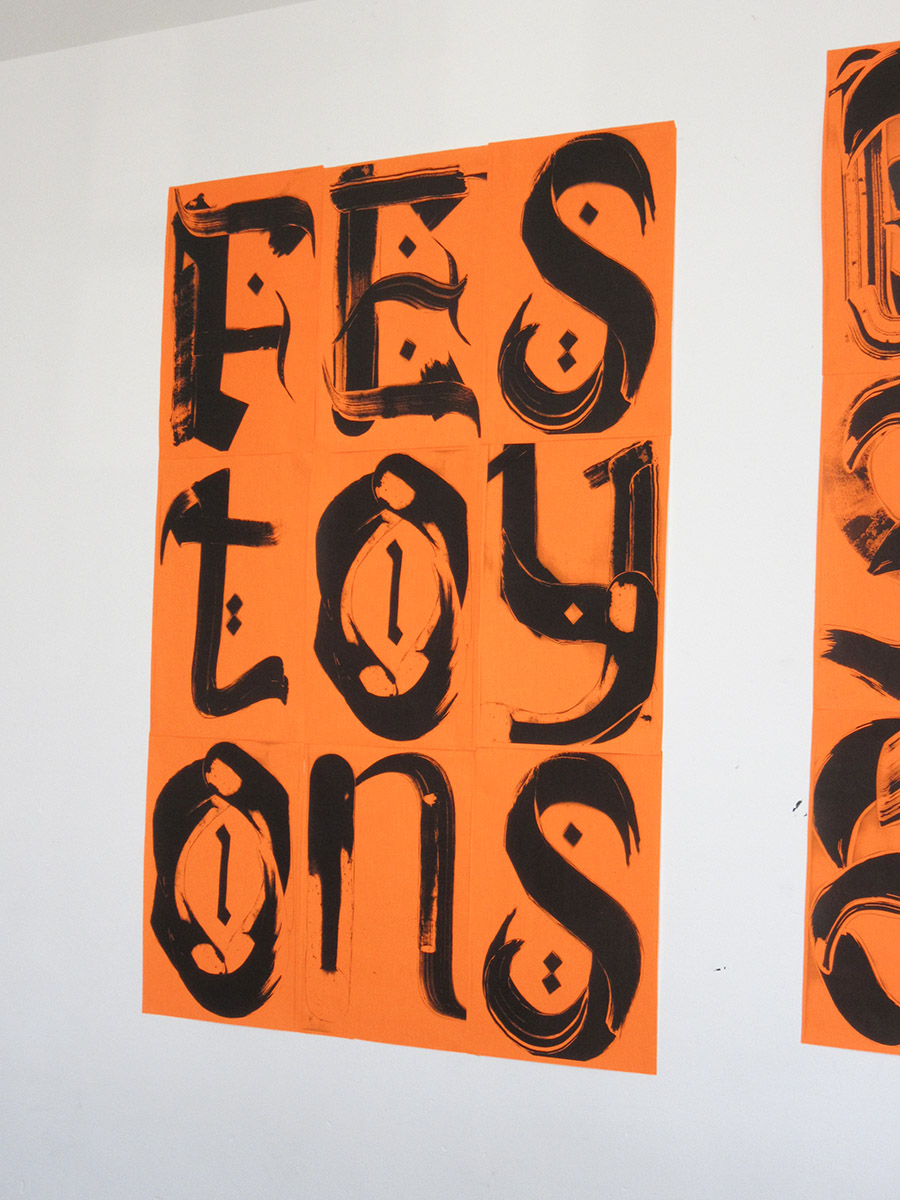 FES
toy
ons